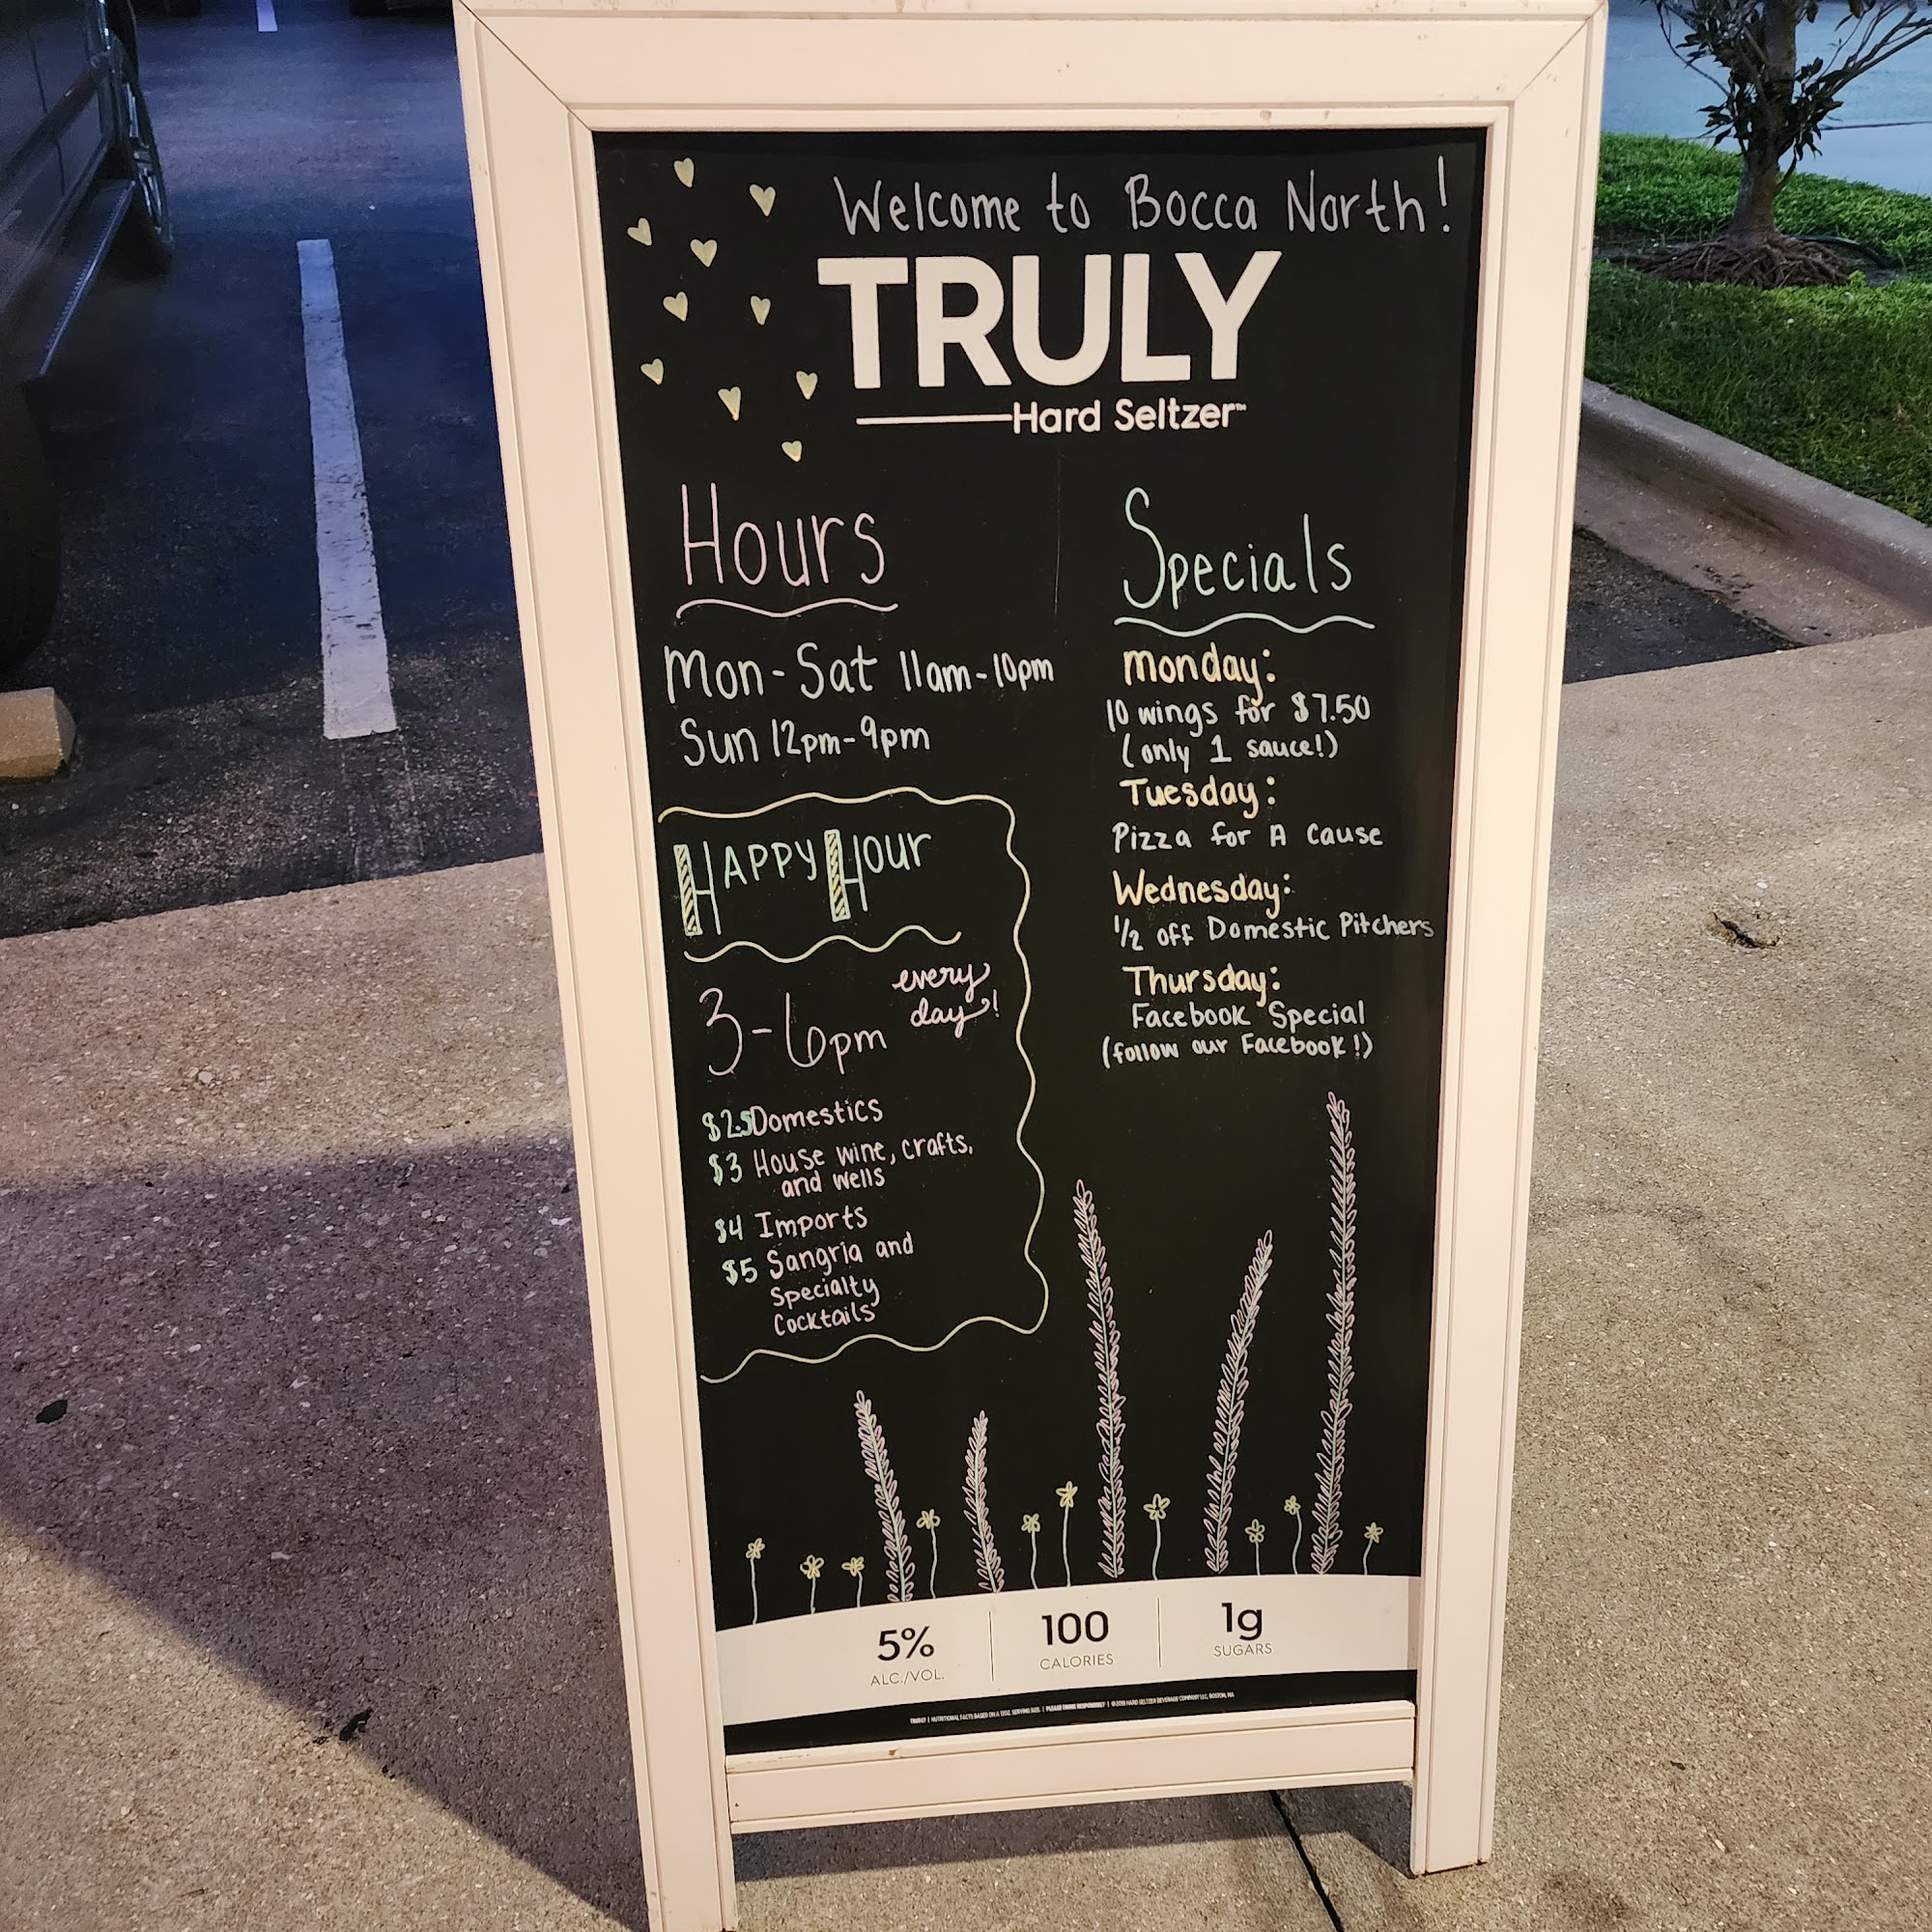 Welcome to Bocca North!
TRULY
Hard Seltzer™
Hours
Mon-Sat 11am-10pm
Sun 12pm-9pm
Happy Hour
3-6pm every day!
$2.5 Domestics
$3 House wine, crafts,
and wells
$4 Imports
$5 Sangria and
Specialty
Cocktails
Specials
Monday:
10 wings for $7.50
(only 1 sauce!)
Tuesday:
Pizza for A Cause
Wednesday:
1/2 off Domestic Pitchers
Thursday:
Facebook Special
(follow our Facebook!)
5%
ALC./VOL.
100
CALORIES
1g
SUGARS
PLEASE DRINK RESPONSIBLY